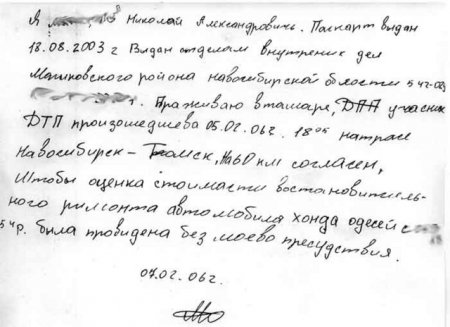 Я Николай Александровичь. Паспарт выдан
18.08.2003 г Выдан отделам внутрених дел
района новасибирской области 54
г. Праживаю в ташаре, ДПП учасник
ДТП произошедшева 05.02.06г. 18 05 натрасе
Новосибирск – Томск, На 60 км согласен,
Штобы оценка стоимасти востановитель-
ного римонта автомобиля хонда одесей с
54р. была провидена без моево пресудствия.
07.02.06г.